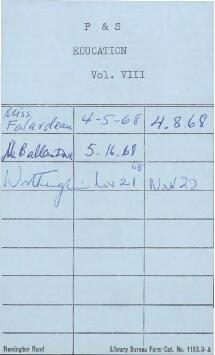 P & S
EDUCATION
Vol. VIII
Miss
Falardeau 4-5-68 4.8.68
Mc Ballantine 5.16.68
68
Worthington Nov 21 Nov 22
Remington Rand Library Bureau Form Cat. No. 1153.3-A